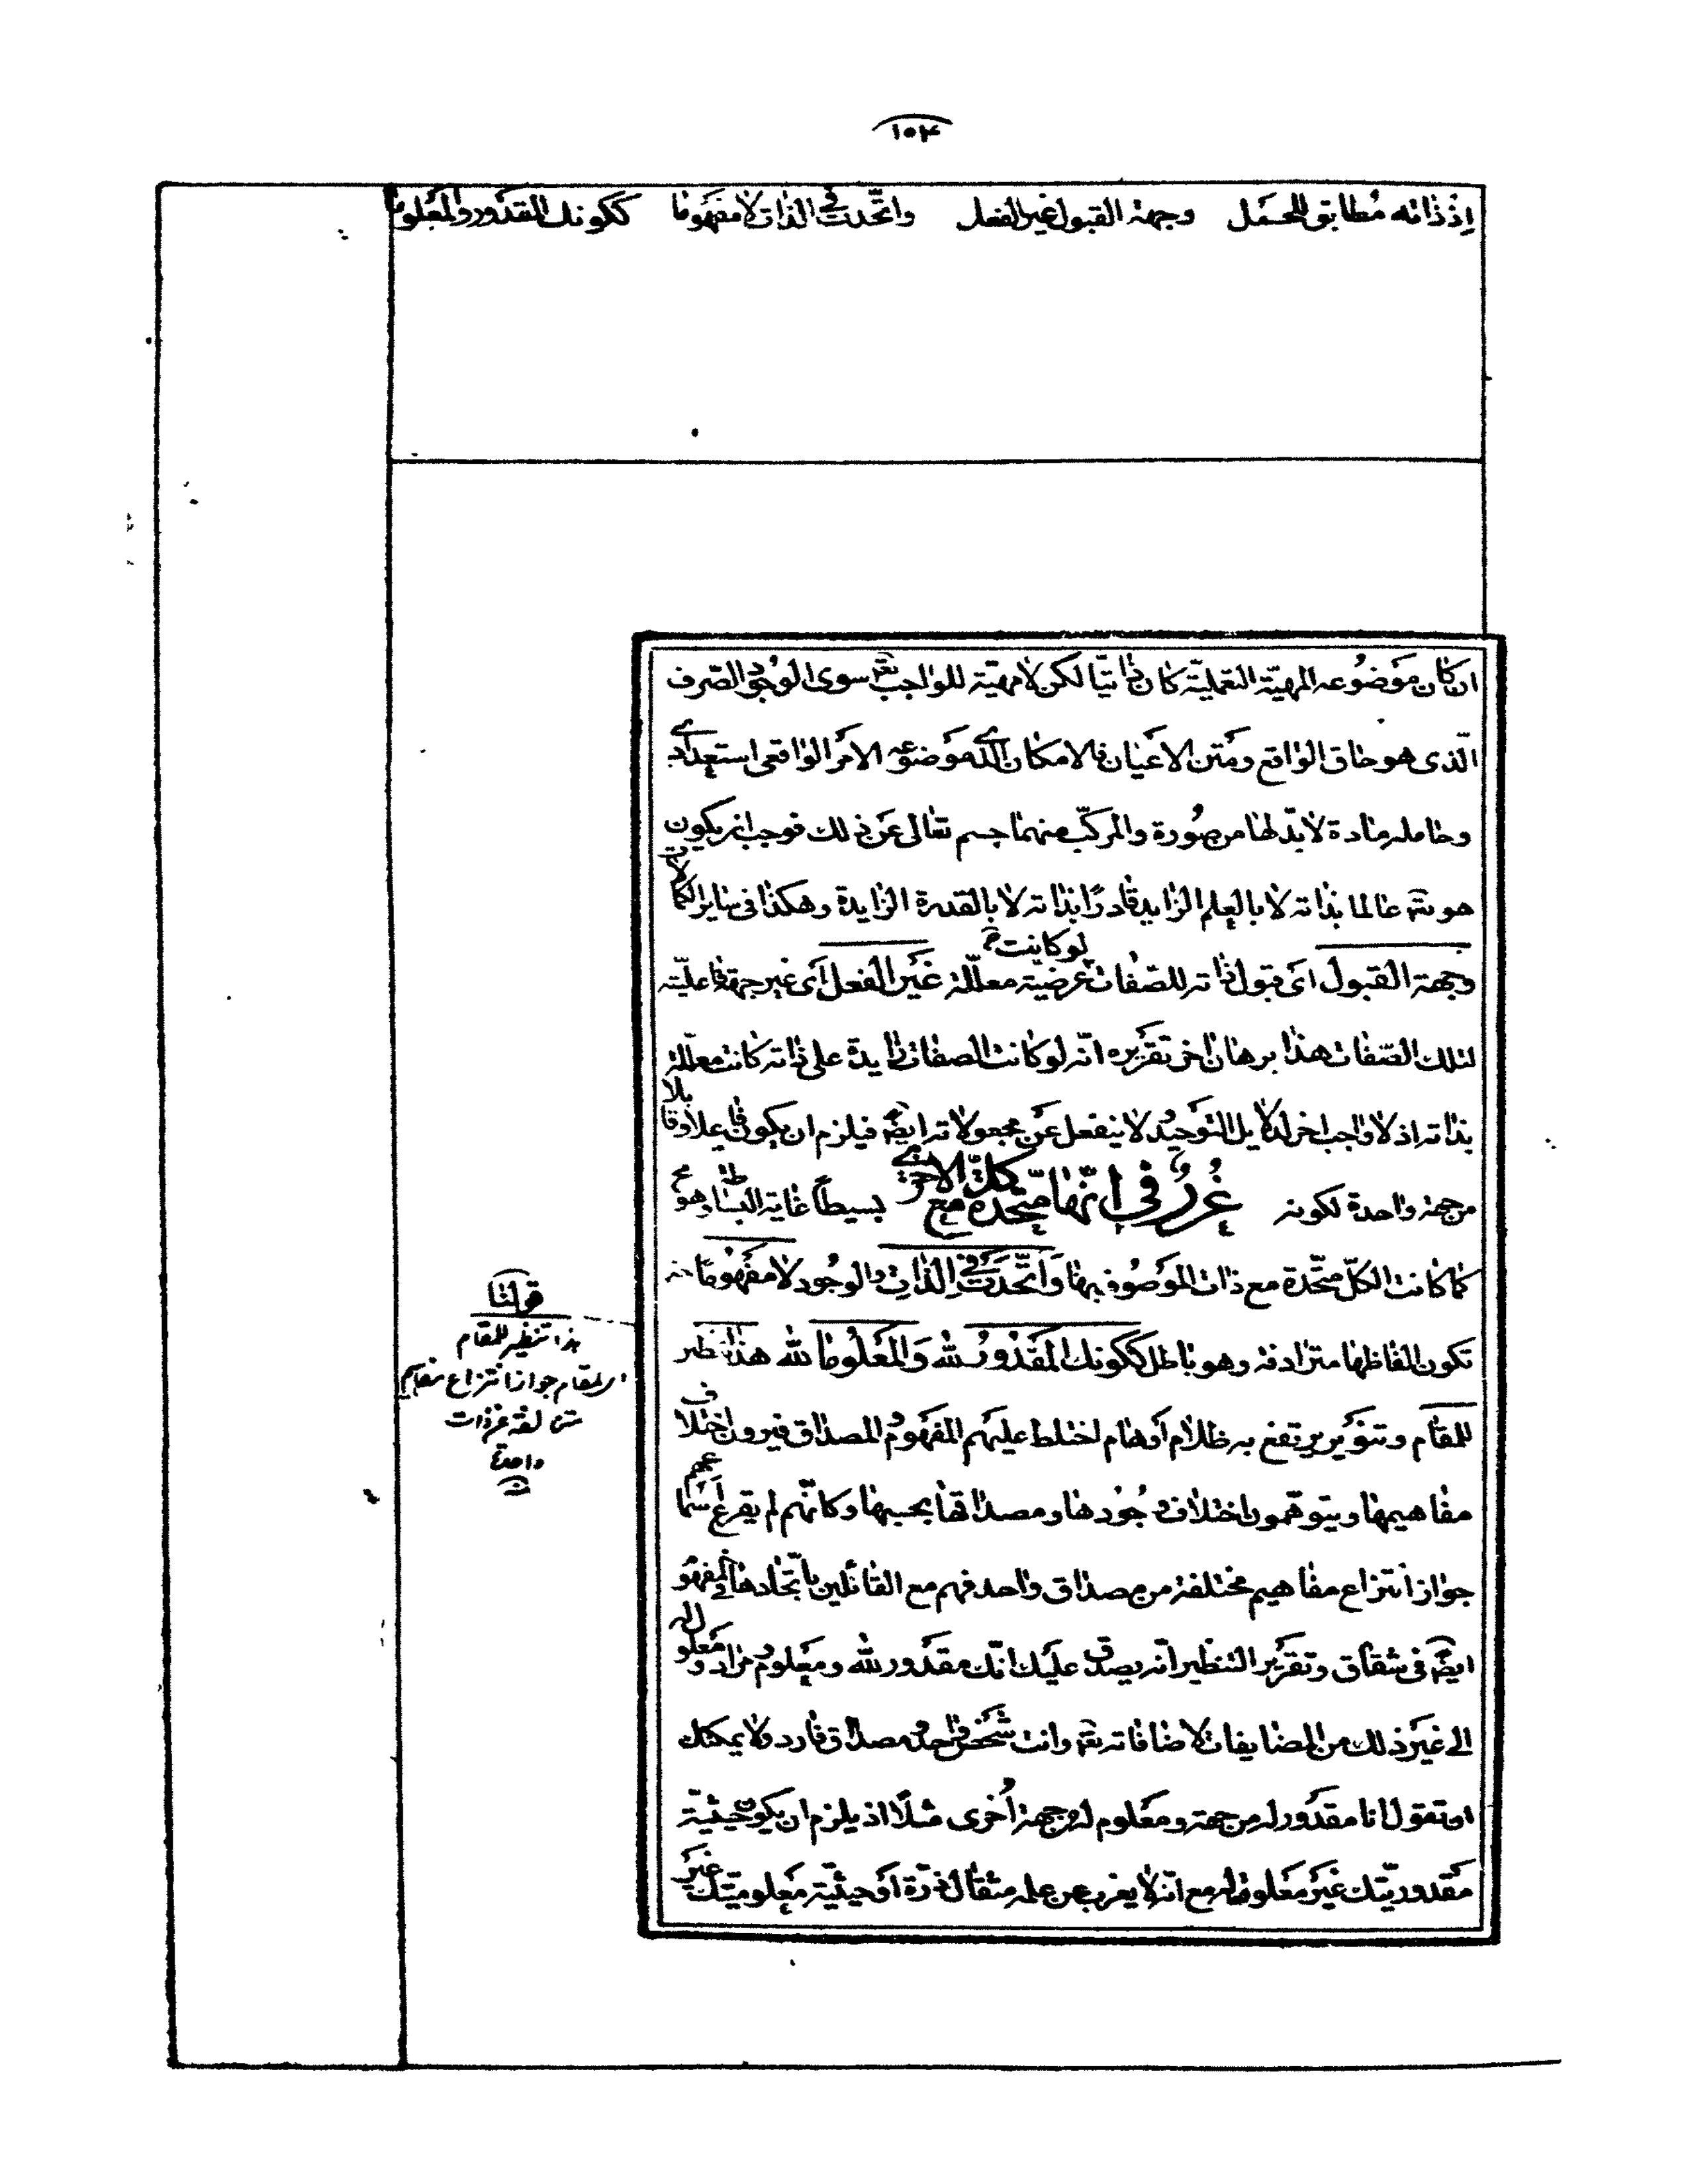 ١٥٤
إذ ذاته مطابق للحمل وجهة القبول غير الفعل واتّحدت في الذات لا مفهوما ككونك المقدور والمعلوما
ان كان موضوعه المهيّة التعمليّة كان ذاتيّا لكن لا مهيّة للواجب تعم سوى الوجود الصّرف
الّذى هو حاق الواقع ومتن الاعيان فالامكان الذى موضوعه الامر الواقعى استعدادى
وحامله مادة لا بدّ لها من صورة والمركّب منهما جسم تعالى عن ذلك فوجب ان يكون
هو تعم عالما بذاته لا بالعلم الزايد قادرًا بذاته لا بالقدرة الزايدة وهكذا فى ساير الكمالات
وجهة القبول اى قبول ذاته للصّفات لو كانت عرضية معلّلة غير الفعل اى غير جهة فاعليّته
لتلك الصّفات هذا برهان اخر تقريره انّه لو كانت الصفات زايدة على ذاته كانت معلّلة
بذاته اذ لا واجب اخر لدلايل التوحيد ولا ينفعل عن مجعولاته ايضم فيلزم ان يكون فاعلا وقابلا
من جهة واحدة لكونه بسيطاً غاية البساطة وهو مح
غُررٌ فى انّها متّحدة كلّ مع الاخرى
كما كانت الكلّ متّحدة مع ذات الموصوف بها وَاتّحدَت فى الذّاتِ والوجود لا مفهُومًا حتى
تكون الفاظها مترادفة وهو باطل ككونك المقدُور لله وَالمعلُوما لله هذا تنظير
للمقام وتنوير يرتفع به ظلام أوهام اختلط عليهم المفهوم والمصداق فيرون اختلاف
مفاهيمها ويتوهّمون اختلاف وجُودها ومصداقها بحسبها وكانّهم لم يقرع أسماعهم
جواز انتزاع مفاهيم مختلفة من مصداق واحد فهم مع القائلين باتّحادها فى المفهوم
ايضم فى شقاق وتقرير التنظير انّه يصدق عليك انّك مقدور لله ومعلوم ومراد ومعلول له
الى غير ذلك من المضايفات لاضافاته تعم وانت شخص واحد ومصداق فارد ولا يمكنك
ان تقول انا مقدور له من جهة ومعلوم له من جهة اُخرى مثلًا اذ يلزم ان يكون حيثيّة
مقدوريّتك غير معلومة له مع انّه لا يعزب عن علمه مثقال ذرة أو حيثيّة معلوميّتك غير
قولنا
هذا تنظير للمقام
اى لمقام جواز انتزاع مفاهيم
متخالفة عن ذات
واحدة